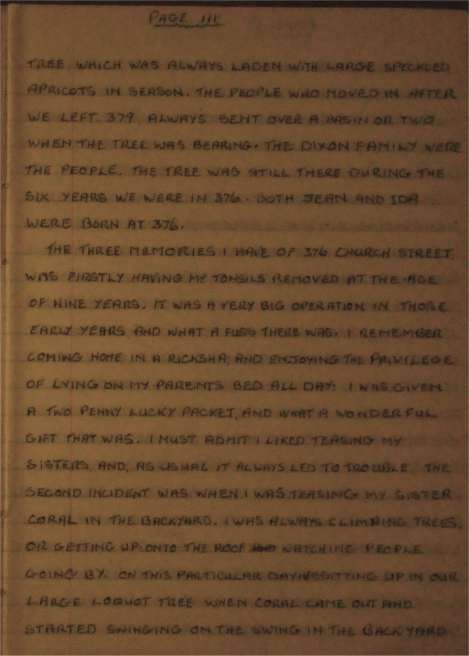 PAGE III
TREE, WHICH WAS ALWAYS LADEN WITH LARGE SPECKLED
APRICOTS IN SEASON. THE PEOPLE WHO MOVED IN AFTER
WE LEFT 379, ALWAYS SENT OVER A BASIN OR TWO
WHEN THE TREE WAS BEARING. THE DIXON FAMILY WERE
THE PEOPLE. THE TREE WAS STILL THERE DURING THE
SIX YEARS WE WERE IN 376. BOTH JEAN AND IDA
WERE BORN AT 376.
THE THREE MEMORIES I HAVE OF 376 CHURCH STREET,
WAS FIRSTLY HAVING MY TONSILS REMOVED AT THE AGE
OF NINE YEARS. IT WAS A VERY BIG OPERATION IN THOSE
EARLY YEARS AND WHAT A FUSS THERE WAS. I REMEMBER
COMING HOME IN A RICKSHA, AND ENJOYING THE PRIVILEGE
OF LYING ON MY PARENTS BED ALL DAY. I WAS GIVEN
A TWO PENNY LUCKY PACKET, AND WHAT A WONDERFUL
GIFT THAT WAS. I MUST ADMIT I LIKED TEASING MY
SISTERS, AND, AS USUAL IT ALWAYS LED TO TROUBLE. THE
SECOND INCIDENT WAS WHEN I WAS TEASING MY SISTER
CORAL IN THE BACKYARD. I WAS ALWAYS CLIMBING TREES,
OR GETTING UP ONTO THE ROOF AND WATCHING PEOPLE
GOING BY. ON THIS PARTICULAR DAY SITTING UP IN OUR
LARGE LOQUOT TREE WHEN CORAL CAME OUT AND
STARTED SWINGING ON THE SWING IN THE BACKYARD